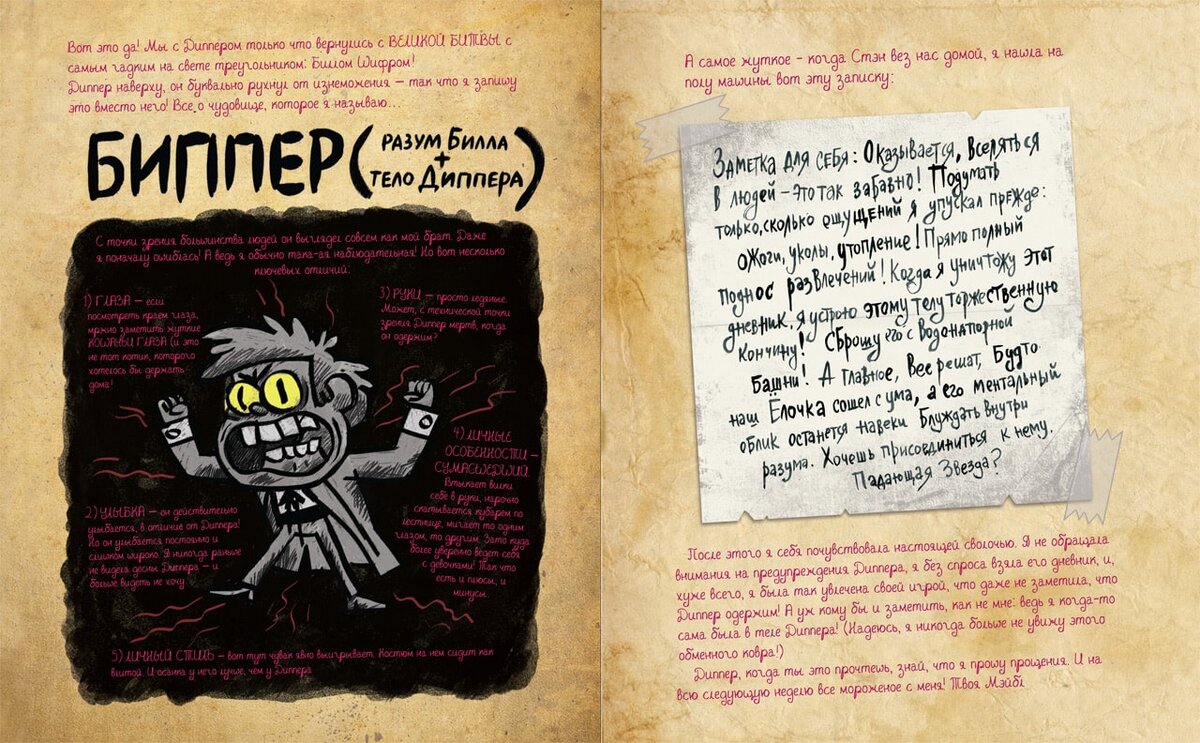 Вот это да! Мы с Диппером только что вернулись с ВЕЛИКОЙ БИТВЫ с
самым гадким на свете треугольником: Биллом Шифром!
Диппер наверху, он буквально рухнул от изнеможения — так что я запишу
это вместо него! Все о чудовище, которое я называю...
БИППЕР (РАЗУМ БИЛЛА
+
ТЕЛО ДИППЕРА)
С точки зрения большинства людей он выглядел совсем как мой брат. Даже
я поначалу ошиблась! А ведь я обычно така-ая наблюдательная! Но вот несколько
ключевых отличий:
1) ГЛАЗА — если
посмотреть краем глаза,
можно заметить жуткие
КОШАЧЬИ ГЛАЗА (и это
не тот котик, которого
хотелось бы держать
дома!
2) УЛЫБКА — он действительно
улыбается, в отличие от Диппера!
Но он улыбается постоянно и
слишком широко. Я никогда раньше
не видела десны Диппера — и
больше видеть не хочу
3) РУКИ — просто ледяные.
Может, с технической точки
зрения Диппер мертв, когда
он одержим?
4) ЛИЧНЫЕ
ОСОБЕННОСТИ —
СУМАСШЕДШИЙ.
Втыкает вилки
себе в руки, нарочно
скатывается кубарем по
лестнице, мигает то одним
глазом, то другим. Зато куда
более уверенно ведет себя
с девочками! Так что
есть и плюсы, и
минусы.
5) ЛИЧНЫЙ СТИЛЬ — вот тут чувак явно выигрывает. Костюм на нем сидит как
влитой. И осанка у него лучше, чем у Диппера
А самое жуткое - когда Стэн вез нас домой, я нашла на
полу машины вот эту записку:
Заметка для себя: Оказывается, вселяться
в людей - это так забавно! Подумать
только, сколько ощущений я упускал прежде:
ожоги, уколы, утопление! Прямо полный
поднос развлечений! Когда я уничтожу этот
дневник, я устрою этому телу торжественную
кончину! Сброшу его с водонапорной
башни! А главное, все решат, будто
наш Ёлочка сошел с ума, а его ментальный
облик останется навеки блуждать внутри
разума. Хочешь присоединиться к нему,
Падающая Звезда?
После этого я себя почувствовала настоящей сволочью. Я не обращала
внимания на предупреждения Диппера, я без спроса взяла его дневник, и,
хуже всего, я была так увлечена своей игрой, что даже не заметила, что
Диппер одержим! А уж кому бы и заметить, как не мне: ведь я когда-то
сама была в теле Диппера! (Надеюсь, я никогда больше не увижу этого
обменного ковра!)
Диппер, когда ты это прочтешь, знай, что я прошу прощения. И на
всю следующую неделю все мороженое с меня! Твоя Мэйбл